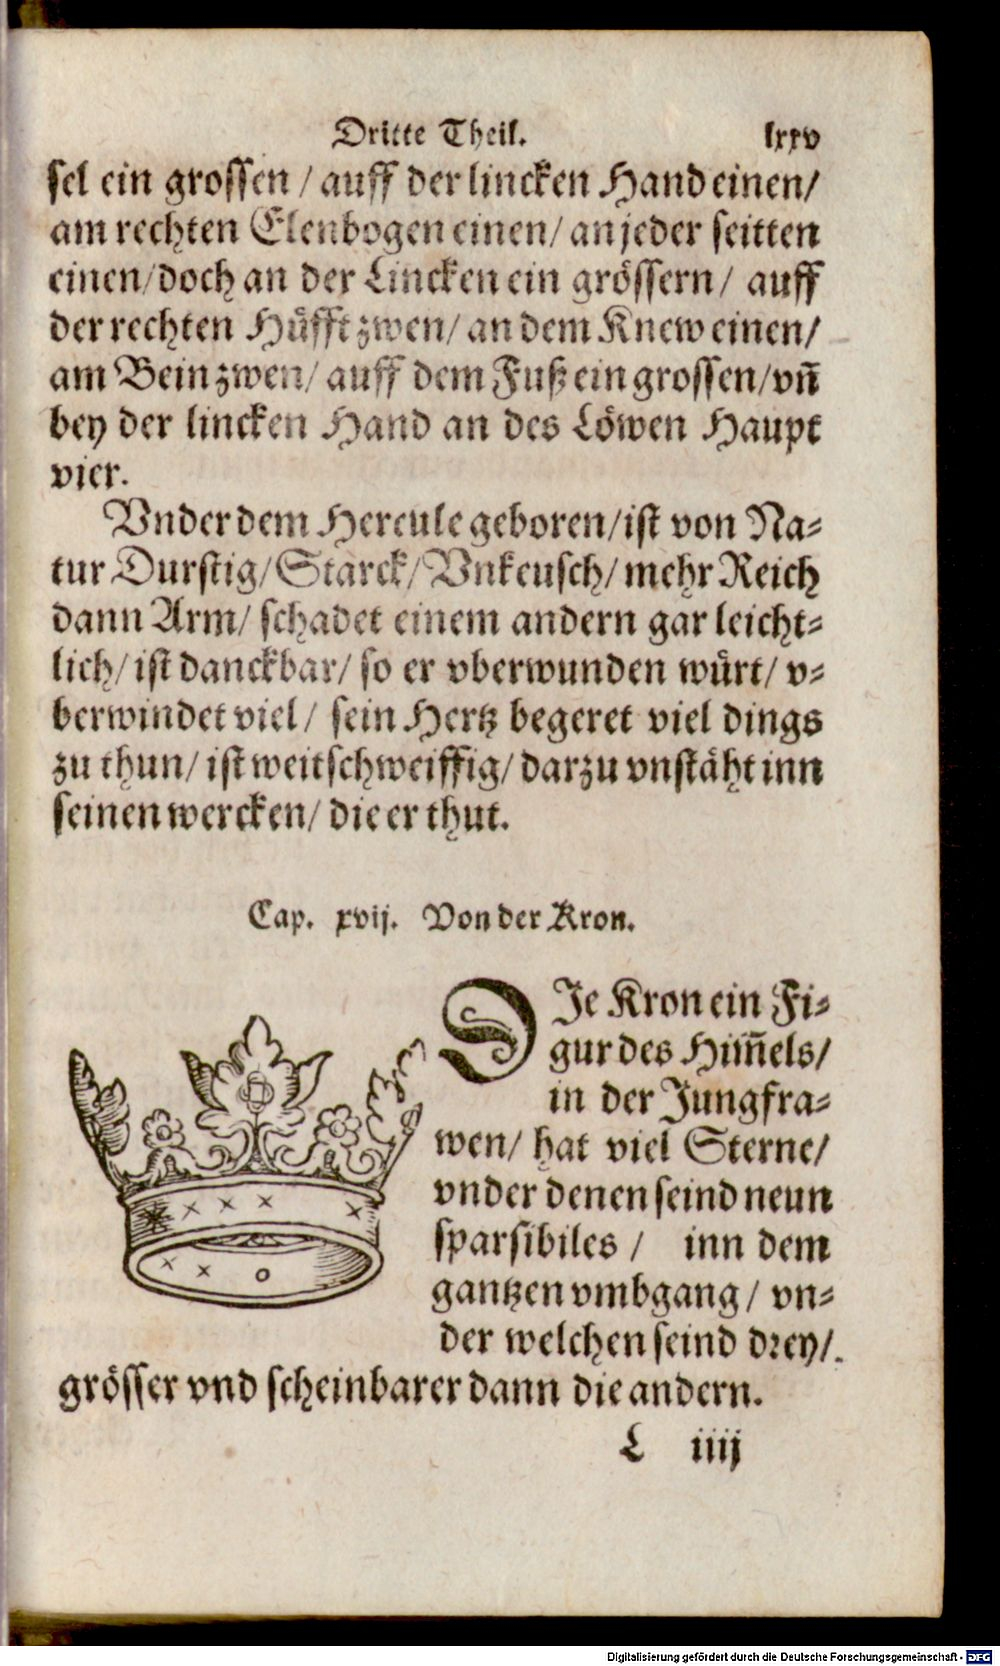 Dritte Theil. lxxv
sel ein grossen / auff der lincken Hand einen/
am rechten Elenbogen einen/ an jeder seitten
einen/doch an der Lincken ein grössern/ auff
der rechten Hüfft zwen/ an dem Knew einen/
am Bein zwen/ auff dem Fuß ein grossen/vñ
bey der lincken Hand an des Löwen Haupt
vier.
Vnder dem Hercule geboren/ist von Na-
tur Durstig/Starck/Vnkeusch/mehr Reich
dann Arm/ schadet einem andern gar leicht-
lich/ ist danckbar/ so er vberwunden würt/ v-
berwindet viel/ sein Hertz begeret viel dings
zu thun/ ist weitschweiffig/ darzu vnstäht inn
seinen wercken/ die er thut.
Cap. xvij. Von der Kron.
DJe Kron ein Fi-
gur des Him̃els/
in der Jungfra-
wen/ hat viel Sterne/
vnder denen seind neun
sparsibiles / inn dem
gantzen vmbgang / vn-
der welchen seind drey/
grösser vnd scheinbarer dann die andern.
L iiij
Digitalisierung gefördert durch die Deutsche Forschungsgemeinschaft - DFG